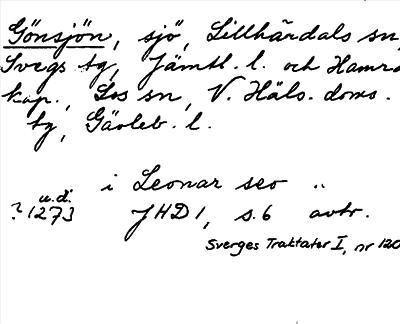 Gönsjön, sjö, Lillhärdals sn,
Svegs tg, Jämtl. l. och Hamra
kap., Los sn, V. Häls. doms.
tg, Gävleb. l.
i Leonar seo ..
u.d.
? 1273 JHD 1, s. 6 avtr.
Sverges Traktater I, nr 120